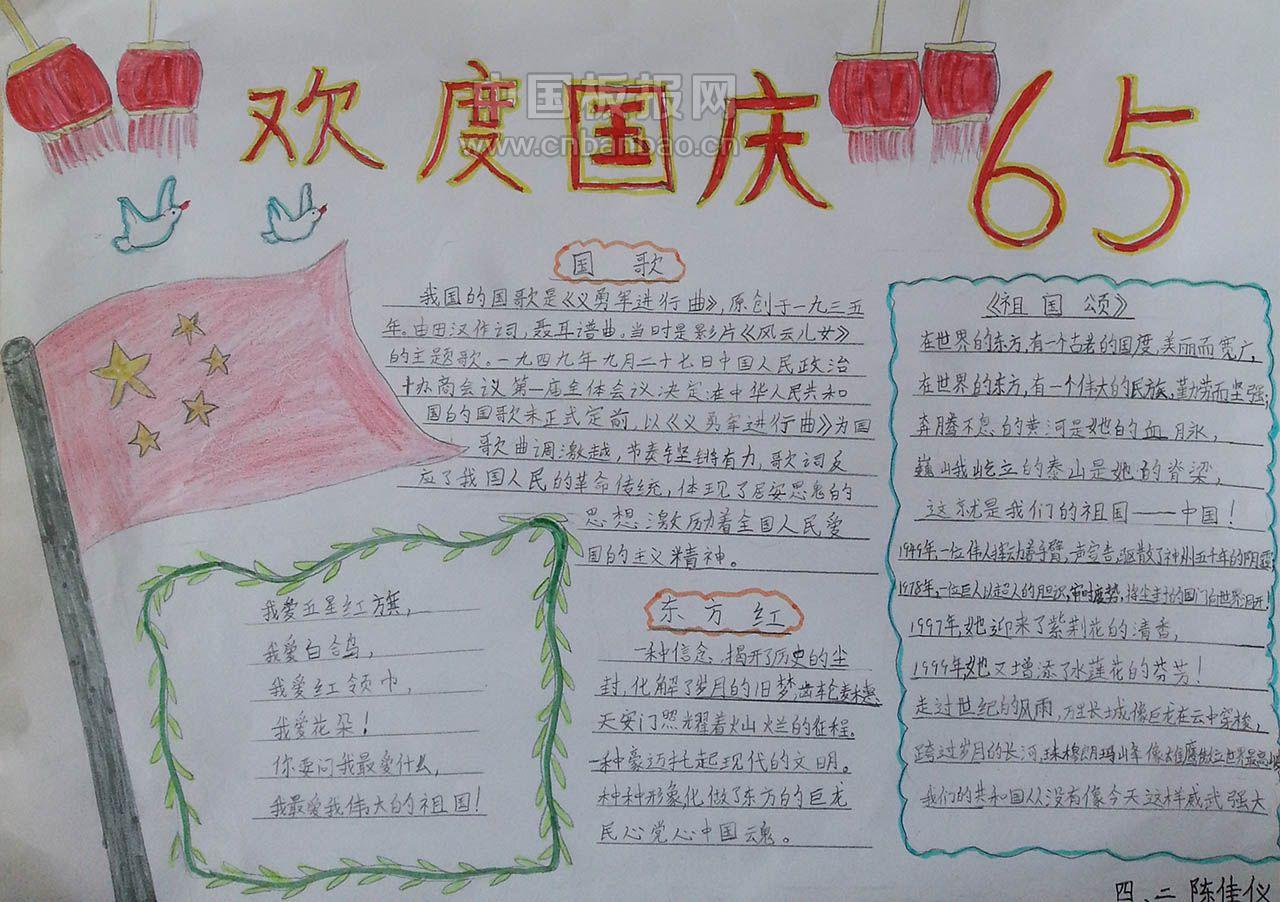 欢度国庆 65
中国板报网
www.cnbanbao.cn
国 歌
我国的国歌是《义勇军进行曲》,原创于一九三五
年。由田汉作词,聂耳谱曲。当时是影片《风云儿女》
的主题歌。一九四九年九月二十七日中国人民政治
办商会议第一届全体会议决定:在中华人民共和
国的国歌未正式定前,以《义勇军进行曲》为国
歌曲调激越,节奏铿锵有力,歌词反
应了我国人民的革命传统,体现了居安思危的
思想激励着全国人民爱
国的主义精神。
我爱五星红旗,
我爱白鸽,
我爱红领巾,
我爱花朵!
你要问我最爱什么,
我最爱我伟大的祖国!
东方红
一种信念,揭开了历史的尘
封,化解了岁月的旧梦,齿轮麦穗
天安门照耀着火山火兰的征程。
一种豪迈托起现代的文明。
种种形象化,做了东方的巨龙
民心党心中国魂。
《祖国颂》
在世界的东方,有一个古老的国度,美丽而宽广,
在世界的东方,有一个伟大的民族,勤劳而坚强;
奔腾不息的黄河是她的血脉,
巍峨屹立的泰山是她的脊梁,
这就是我们的祖国——中国!
1949年,一位伟人挥动着手臂,一声宣告,驱散了神州五千年的阴霾,
1978年,一位巨人以超人的胆识,审时度势,将尘封的国门向世界洞开!
1997年,她迎来了紫荆花的清香,
1999年,她又增添了水莲花的芬芳!
走过世纪的风雨,万里长城像巨龙在云中穿梭,
跨过岁月的长河,珠穆朗玛山峰像雄鹰傲立世界最高
我们的共和国从没有像今天这样威武强大
四、二 陈佳仪